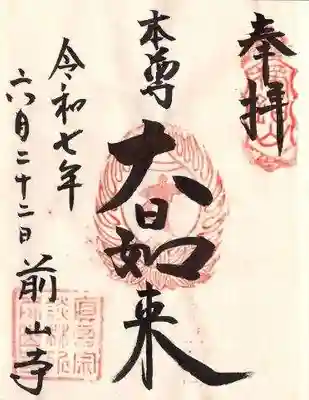 奉拝
本尊
大日如来
令和七年
六月二十二日
前山寺